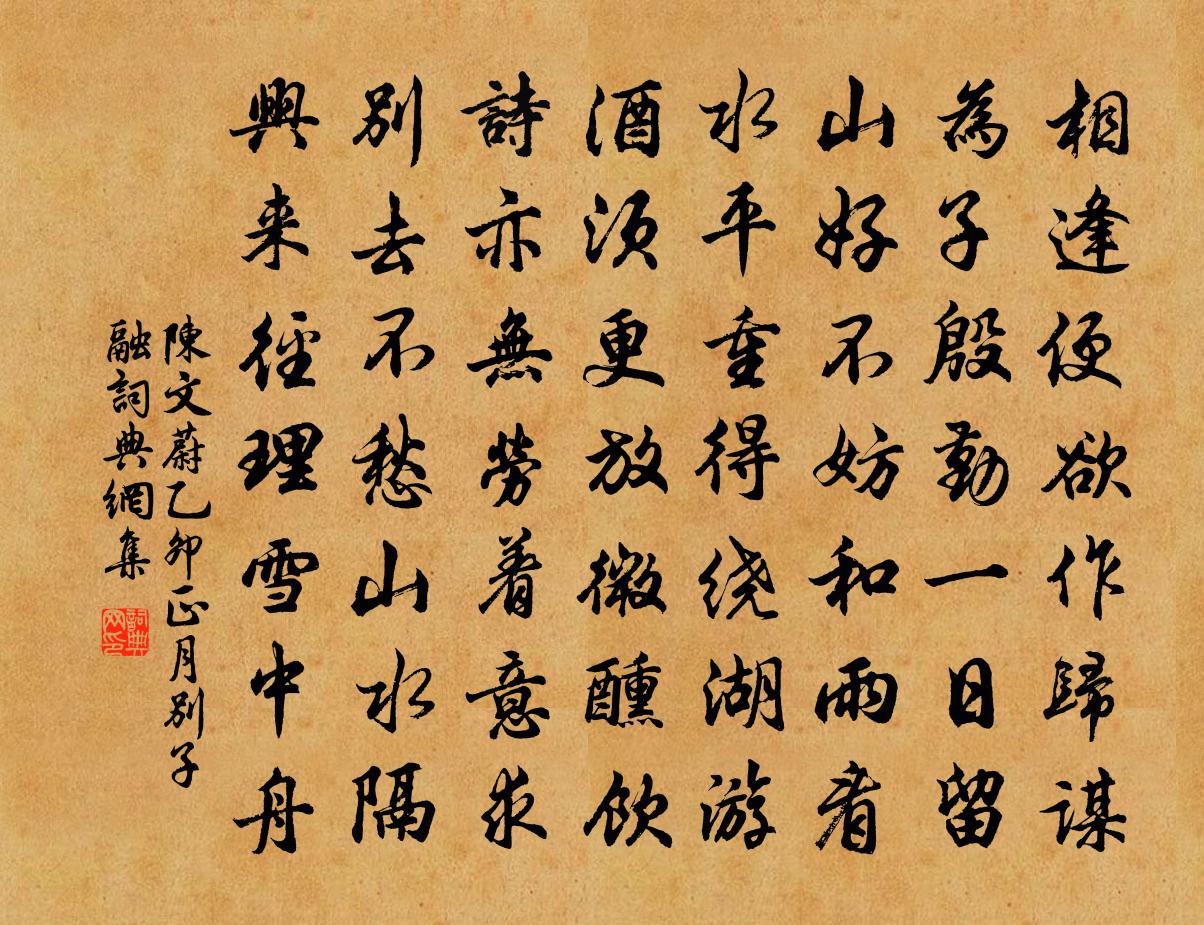 相逢便欲作歸謀
為子殷勤一日留
山好不妨和雨看
水平重得绕湖游
酒須更放微醺飲
詩亦無勞着意求
別去不愁山水隔
興来徑理雪中舟
陳文蔚乙卯正月別子
融詞典網集
詞典网印